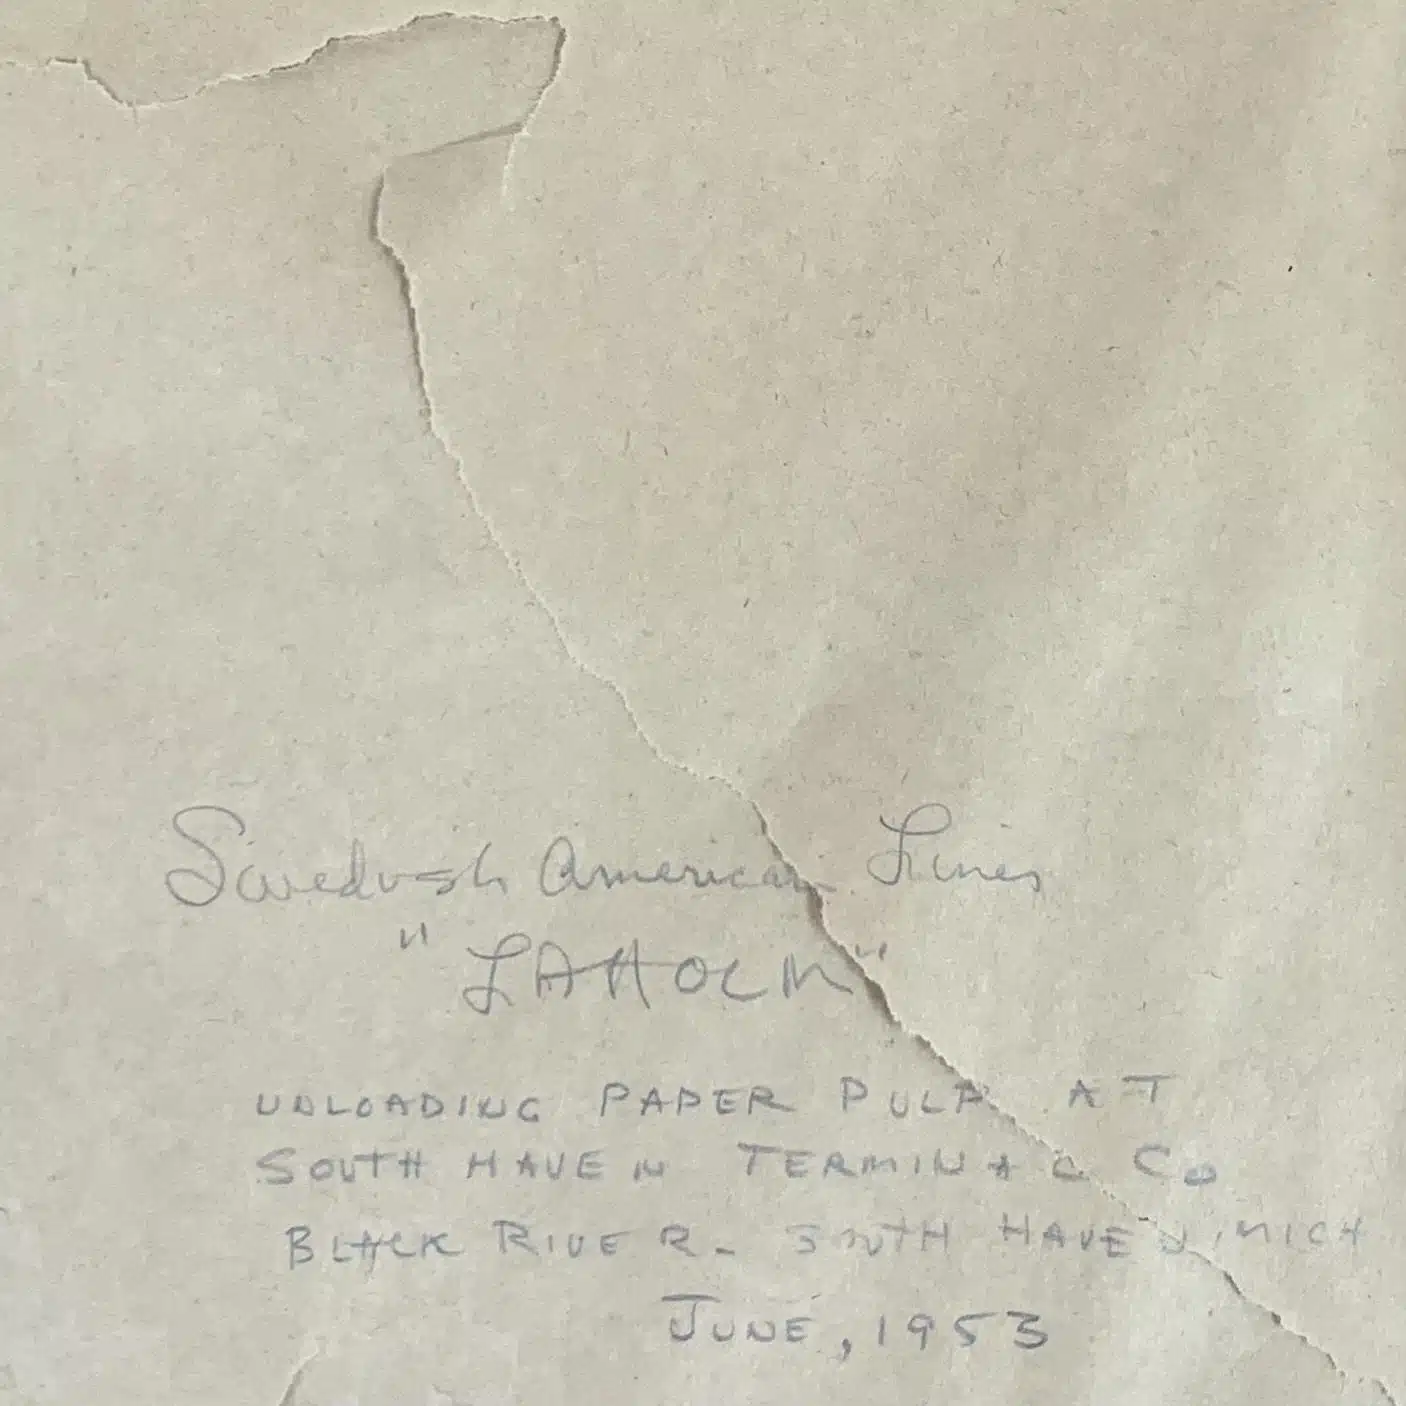 Swedish American Lines
"LAHOLM"
UNLOADING PAPER PULP AT
SOUTH HAVEN TERMINAL CO
BLACK RIVER - SOUTH HAVEN, MICH
JUNE, 1953